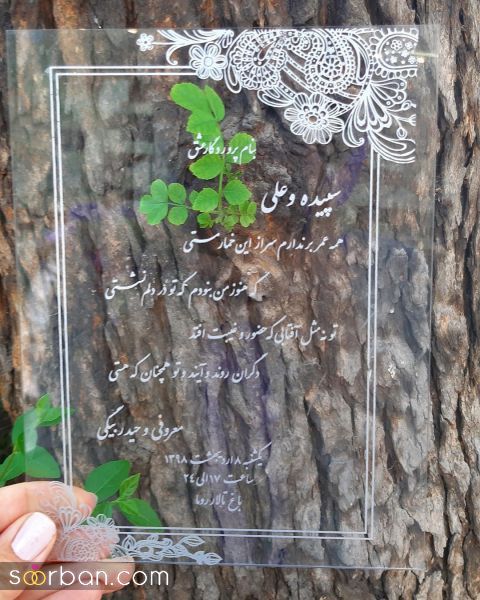 بنام پروردگار عشق
سپیده و علی
همه عمر بر ندارم سر از این خمار مستی
که هنوز من نبودم که تو در دلم نشستی
تو نه مثل آفتابی که حضور و غیبت افتد
دگران روند و آیند و تو همچنان که هستی
معروفی و حیدربیگی
یکشنبه ۸ اردیبهشت ۱۳۹۸
ساعت ۱۷ الی ۲۴
باغ تالار رویا
soorban.com